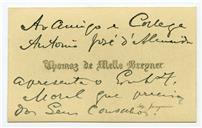 Ao Amigo e Collega
Antonio José d'Almeida
Thomaz de Mello Breyner
apresenta o
Morel que precisa
dos seus conselhos